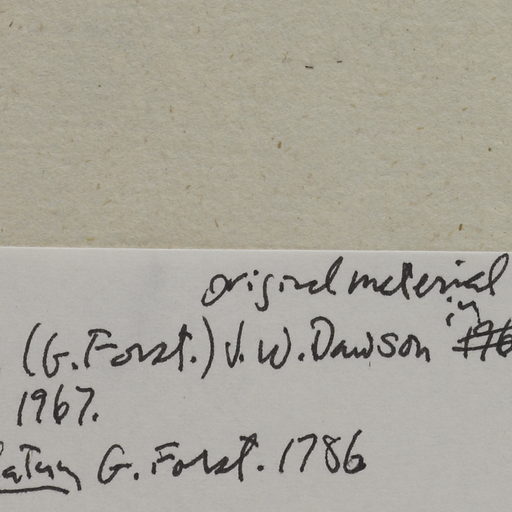 original material
in
(G. Forst.) J. W. Dawson
1967.
G. Forst. 1786